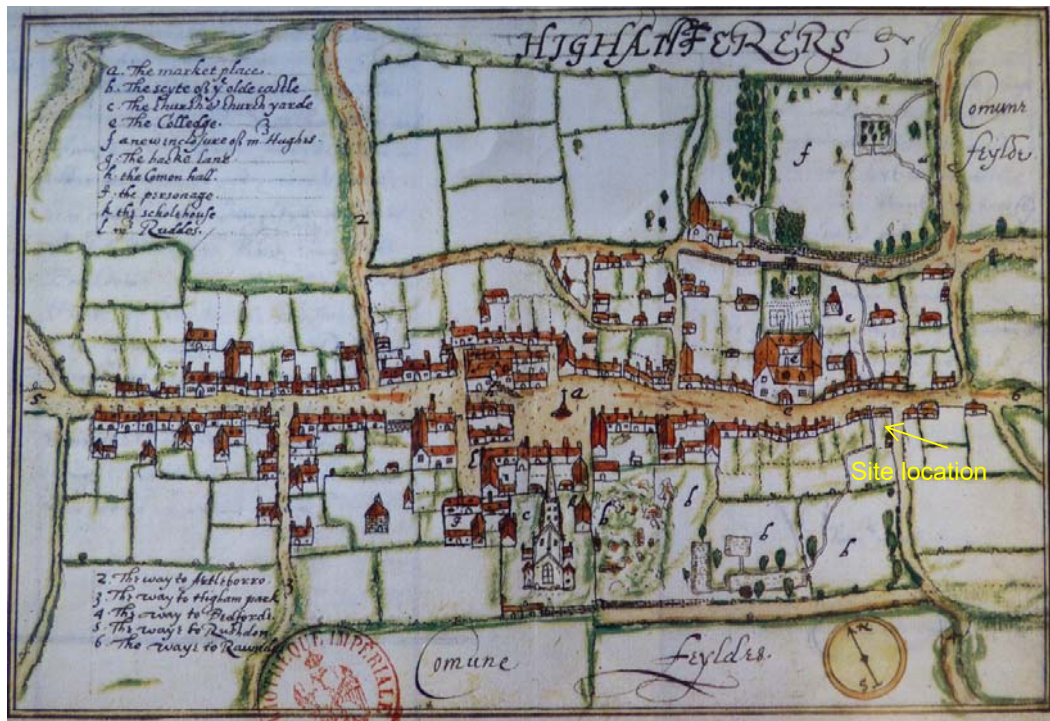 HIGHAMFERERS
a. The market place.
b. The scyte of yͤ olde castle
c. The Church & Church yarde
e. The Colledge.
f a new inclosure of mr Hughes.
g. The backe lane
h. the Comon hall.
the personage.
k the scholehouse
l. mr Ruddes.
Comune
feylde.
f
2
g
4
e
e
e
5
h
a
e
6
Site location
l
b
b
g
c
c
b
b
3
2. The way to Artleborro.
3 The way to Higham park
4 The way to Bedforde.
5 The waye to Rushden
6 The waye to Raunds
Comune
Feyldes.
IMPERIALE
N
S